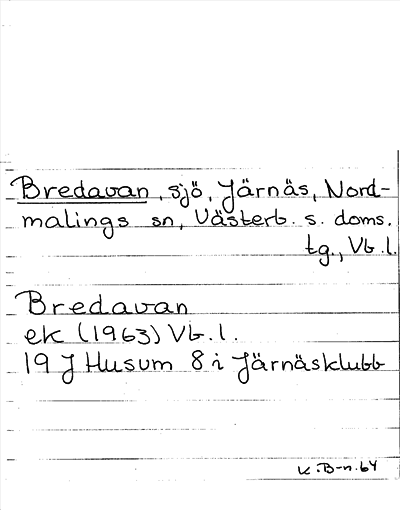 Bredavan, sjö, Järnäs, Nord-
malings sn, Västerb. s. doms.
tg., Vb. l.
Bredavan
ek (1963) Vb. l.
19 J Husum 8 i Järnäsklubb
K. B-n. 64